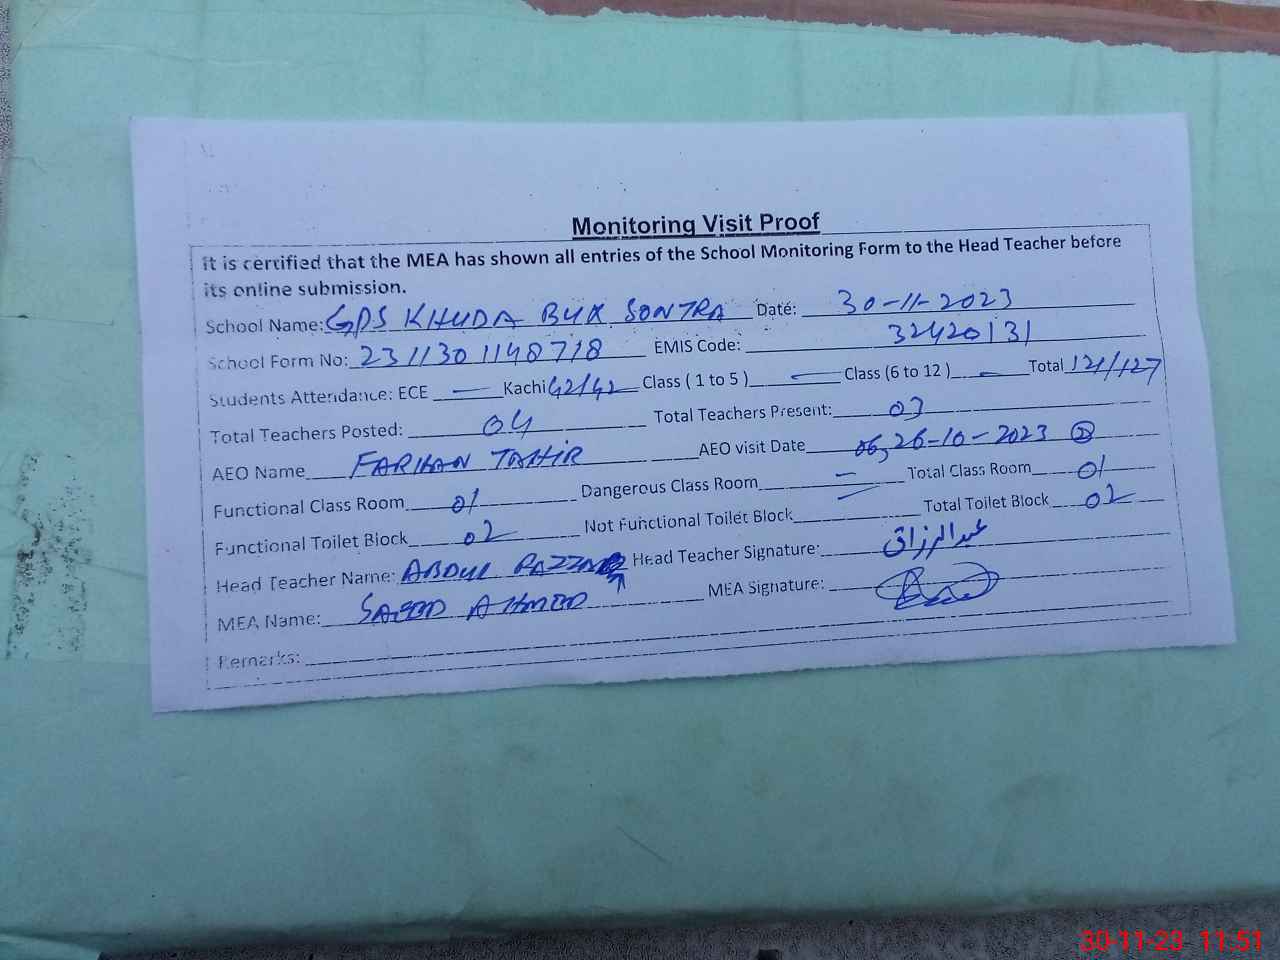 Monitoring Visit Proof
It is certified that the MEA has shown all entries of the School Monitoring Form to the Head Teacher before
its online submission.
School Name: GPS KHUDA BUX SONTRA Date: 30-11-2023
School Form No: 2311301148718 EMIS Code: 32420131
Students Attendance: ECE — Kachi 42/42 Class ( 1 to 5 ) — Class (6 to 12 ) — Total 121/127
Total Teachers Posted: 04 Total Teachers Present: 03
AEO Name FARHAN TAHIR AEO visit Date 06, 26-10-2023 ②
Functional Class Room 01 Dangerous Class Room — Total Class Room 01
Functional Toilet Block 02 Not Functional Toilet Block — Total Toilet Block 02
Head Teacher Name: ABDUL RAZZAQ Head Teacher Signature: عبدالرزاق
MEA Name: SAEED AHMED MEA Signature:
Remarks:
30-11-23 11:51